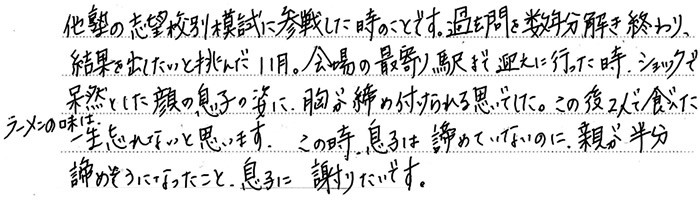 他塾の志望校別模試に参戦した時のことです。過去問を数年分解き終わり、
結果を出したいと挑んだ11月。会場の最寄り駅まで迎えに行った時、ショックで
呆然とした顔の息子の姿に、胸が締め付けられる思いでした。この後2人で食べた
ラーメンの味は、一生忘れないと思います。この時、息子は諦めていないのに、親が半分
諦めそうになったこと、息子に謝りたいです。